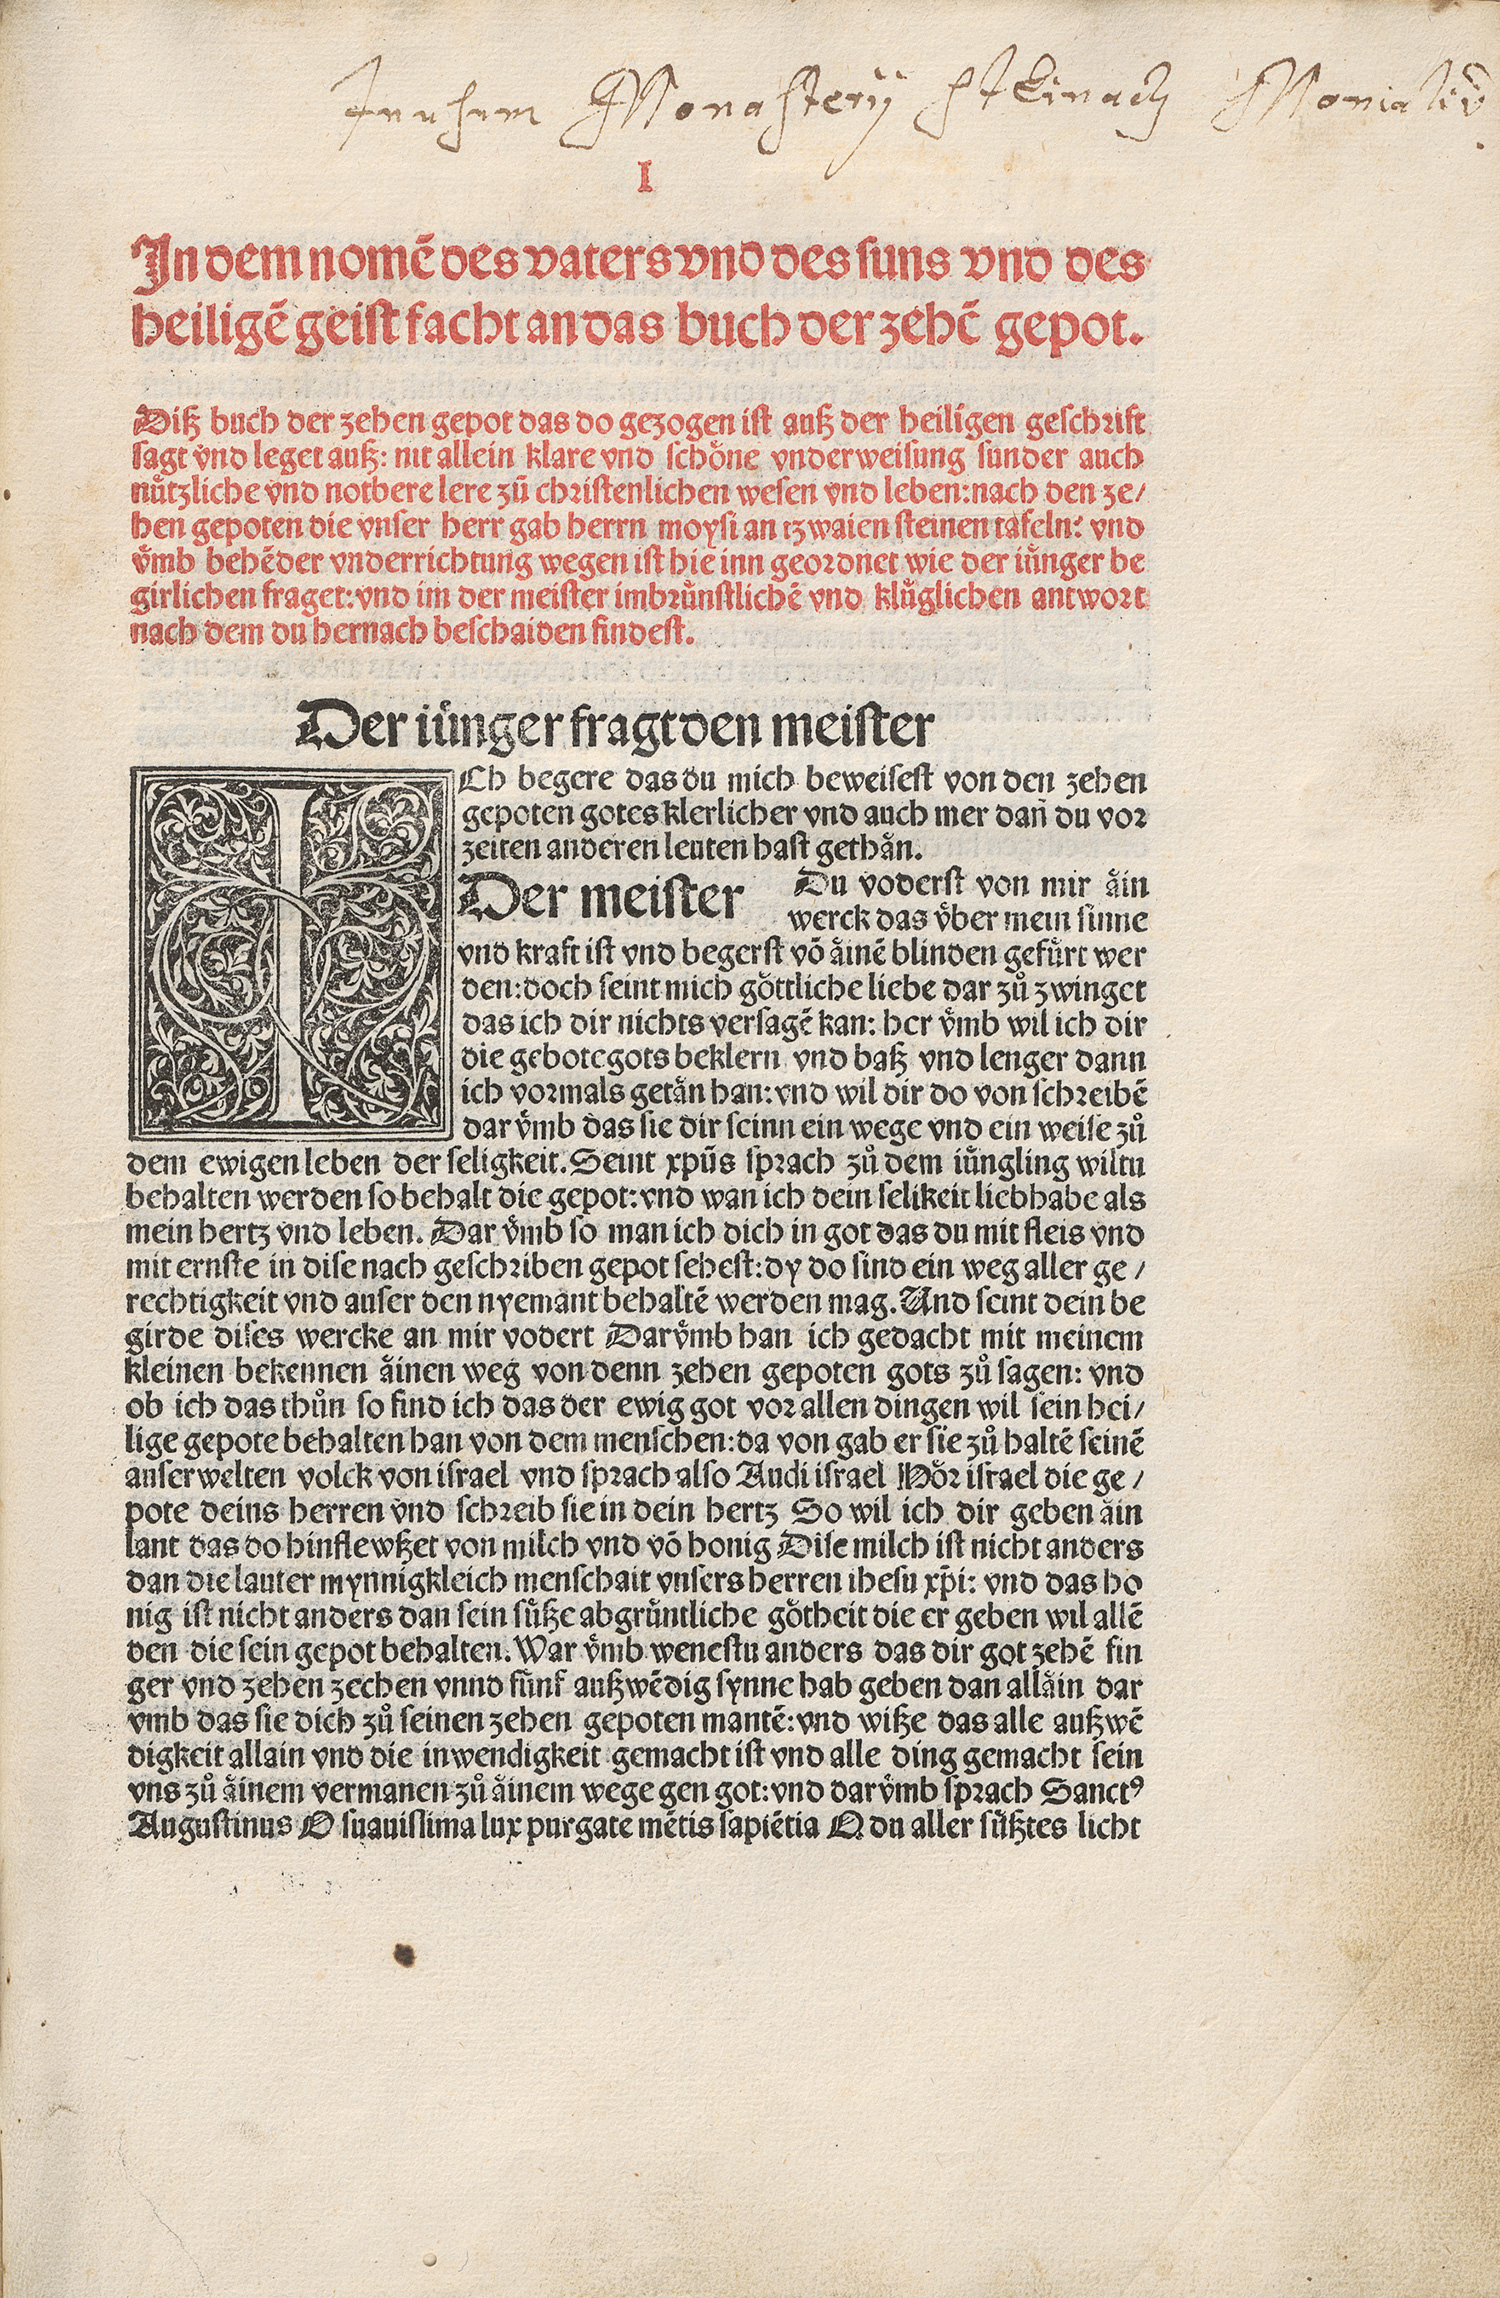 Monasterÿ
I
In dem nomē des vaters vnd des suns vnd des
heiligē geist facht an das buch der zehē gepot.
Diß buch der zehen gepot das do gezogen ist auß der heiligen geschrift
sagt vnd leget auß: nit allein klare vnd schoͤne vnderweisung sunder auch
nuͤtzliche vnd notbere lere zuͦ christenlichen wesen vnd leben: nach den ze/
hen gepoten die vnser herr gab herrn moysi an tzwaien steinen tafeln: vnd
vͤmb behēder vnderrichtung wegen ist hie inn geordnet wie der iuͤnger be
girlichen fraget: vnd im der meister imbruͤnstlichē vnd kluͤglichen antwort
nach dem du hernach beschaiden findest.
Der iuͤnger fragt den meister
ICh begere das du mich beweisest von den zehen
gepoten gotes klerlicher vnd auch mer dañ du vor
zeiten anderen leuten hast gethaͤn.
Der meister Du voderst von mir aͤin
werck das vͤber mein sinne
vnd kraft ist vnd begerst vō aͤinē blinden gefuͤrt wer
den: doch seint mich goͤttliche liebe dar zuͦ zwinget
das ich dir nichts versagē kan: her vͤmb wil ich dir
die gebote gots beklern vnd baß vnd lenger dann
ich vormals getaͤn han: vnd wil dir do von schreibē
dar vͤmb das sie dir seinn ein wege vnd ein weise zuͦ
dem ewigen leben der seligkeit. Seint xp̄us sprach zuͦ dem iuͤngling wiltu
behalten werden so behalt die gepot: vnd wan ich dein selikeit lieb habe als
mein hertz vnd leben. Dar vͤmb so man ich dich in got das du mit fleis vnd
mit ernste in dise nach geschriben gepot sehest: dy do sind ein weg aller ge/
rechtigkeit vnd auser den nyemant behaltē werden mag. Und seint dein be
girde dises wercke an mir vodert Darvͤmb han ich gedacht mit meinem
kleinen bekennen aͤinen weg von denn zehen gepoten gots zuͦ sagen: vnd
ob ich das thuͦn so find ich das der ewig got vor allen dingen wil sein hei/
lige gepote behalten han von dem menschen: da von gab er sie zuͦ haltē seinē
auserwelten volck von israel vnd sprach also Audi israel Hoͤr israel die ge/
pote deins herren vnd schreib sie in dein hertz So wil ich dir geben aͤin
lant das do hinflewßet von milch vnd vō honig Dise milch ist nicht anders
dan die lauter mynnigkleich menschait vnsers herren ihesu xp̄i: vnd das ho
nig ist nicht anders dan sein suͤße abgruͤntliche goͤtheit die er geben wil allē
den die sein gepot behalten. War vͤmb wenestu anders das dir got zehē fin
ger vnd zehen zechen vnnd fuͤnf außwēdig synne hab geben dan allaͤin dar
vmb das sie dich zuͦ seinen zehen gepoten mantē: vnd wiße das alle außwē
digkeit allain vnd die inwendigkeit gemacht ist vnd alle ding gemacht sein
vns zuͦ aͤinem vermanen zuͦ aͤinem wege gen got: vnd darvͤmb sprach Sanctꝰ
Augustinus O suauissima lux purgate mētis sapiētia O du aller suͤßtes licht